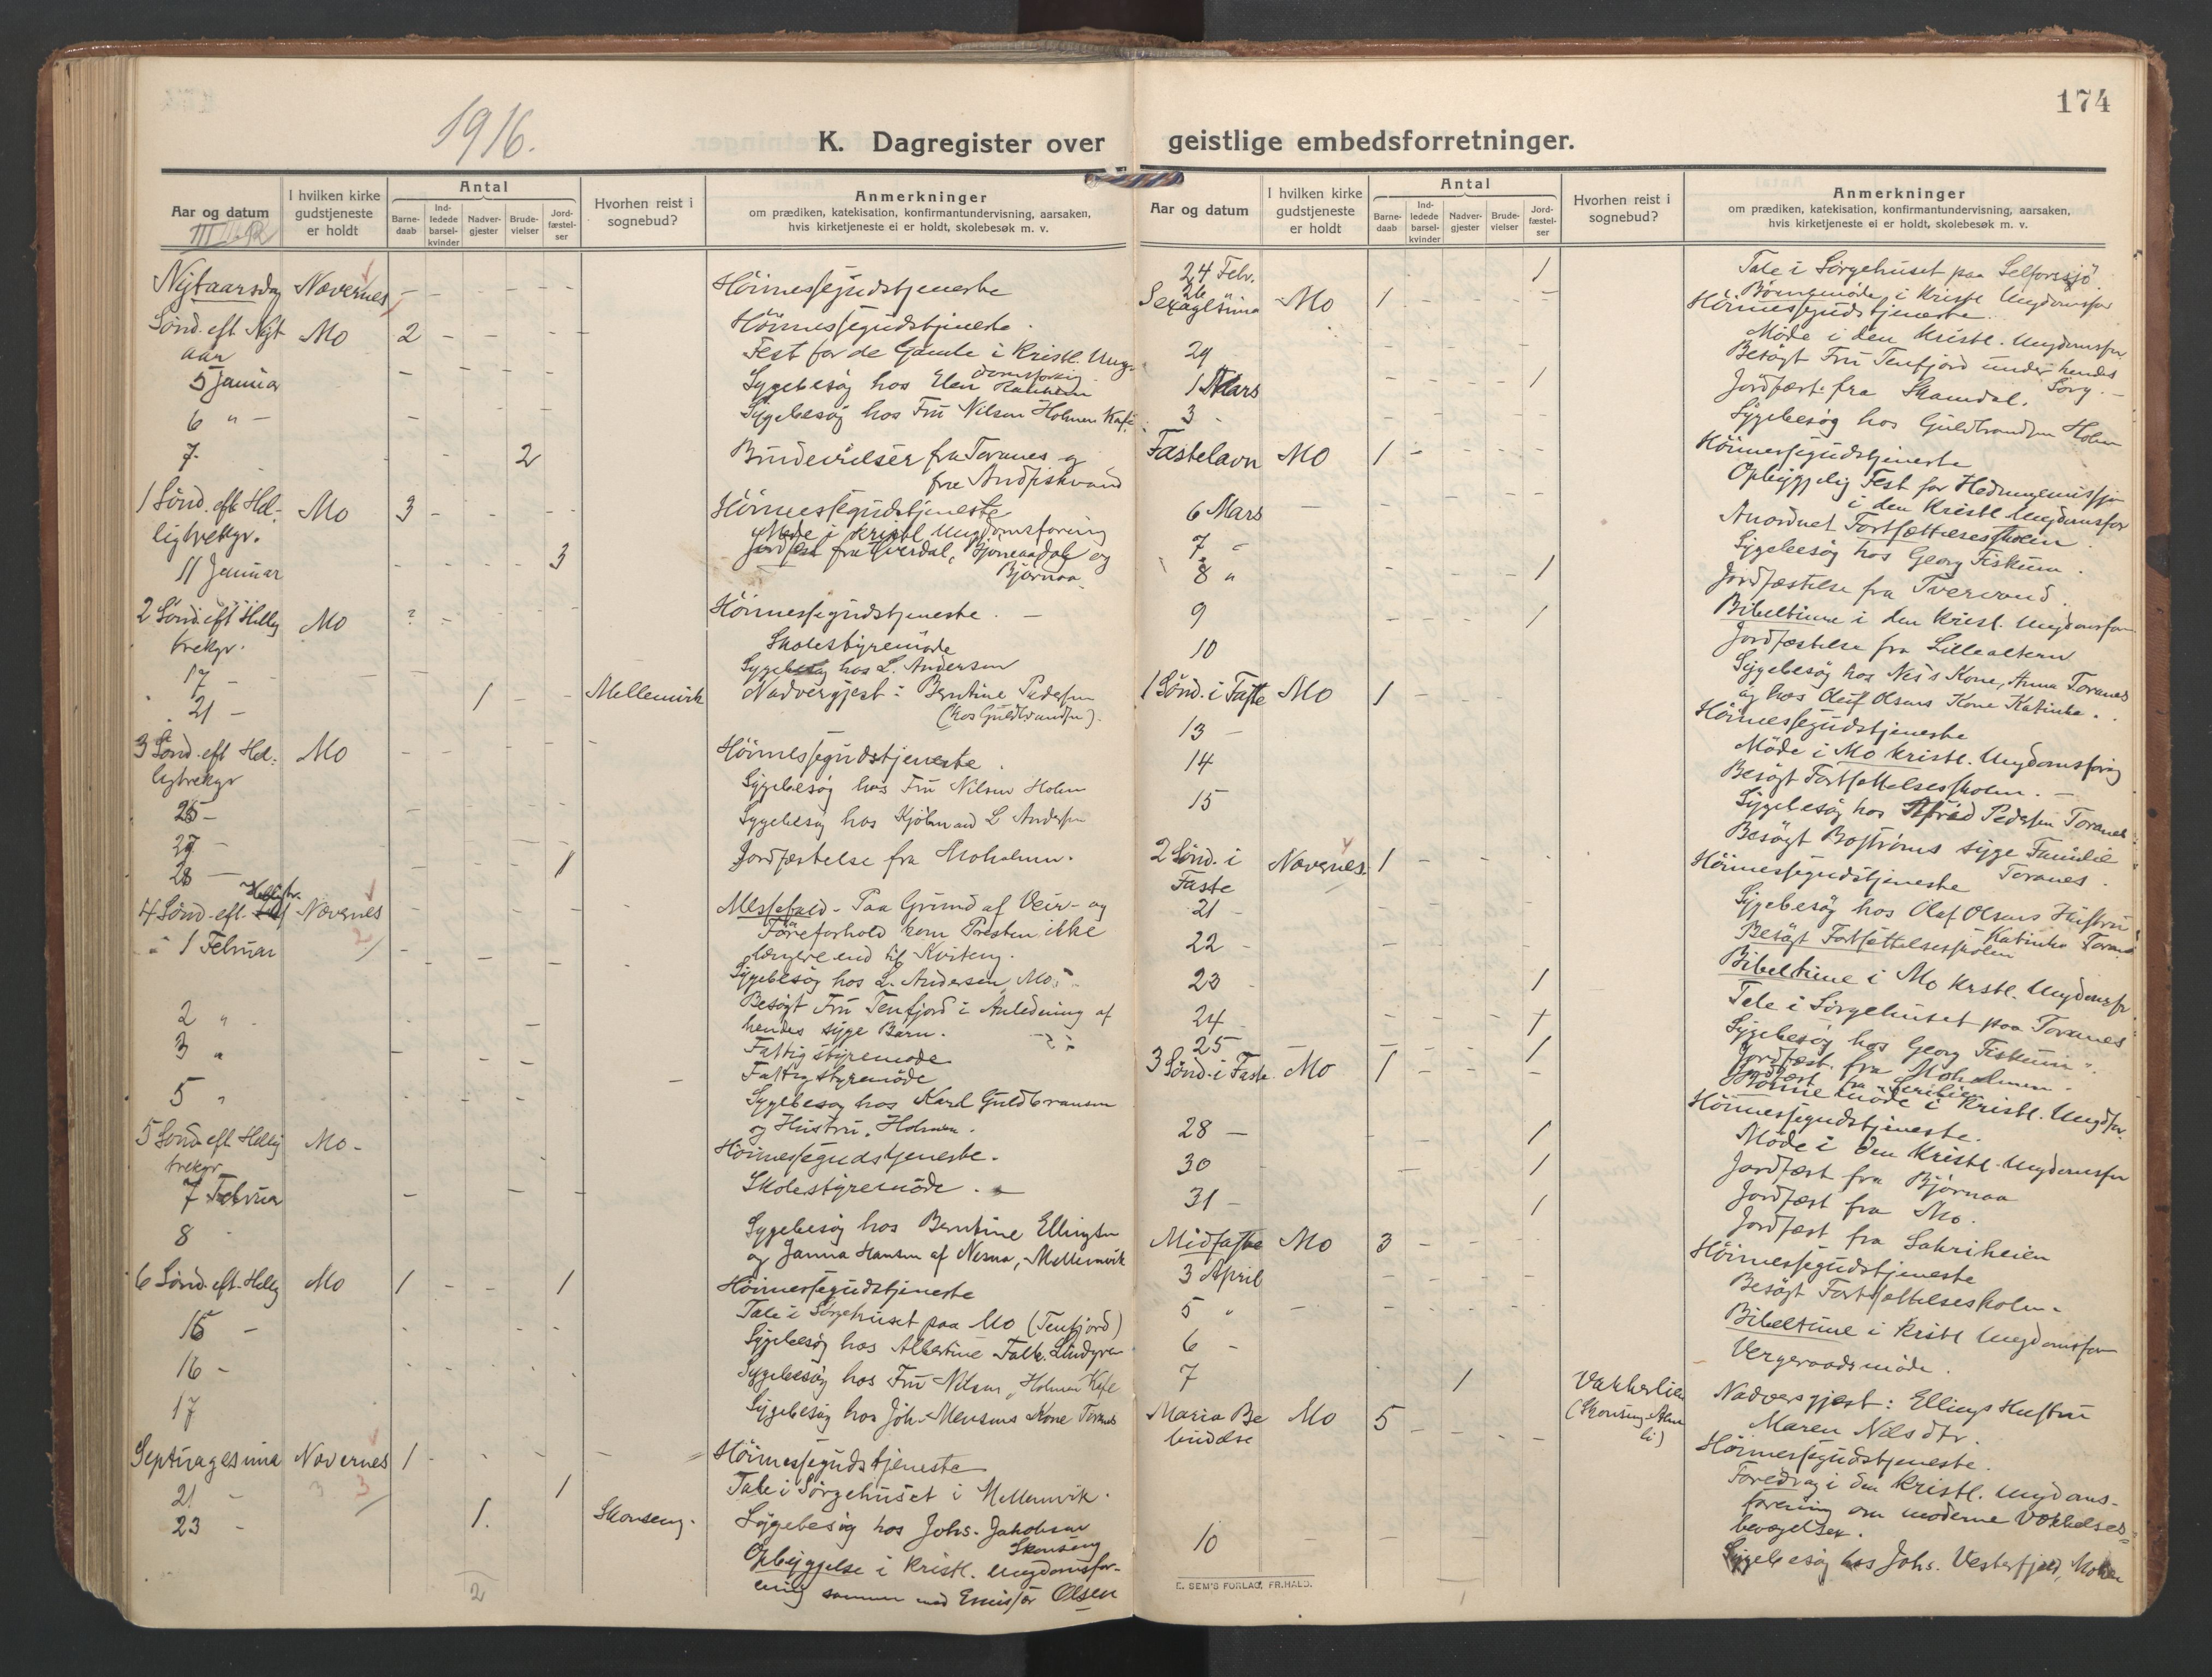 1916.
174
K. Dagregister over geistlige embedsforretninger.
Aar og datum
I hvilken kirke gudstjeneste er holdt
Antal
Barne-daab
Ind-ledede barsel-kvinder
Nadver-gjester
Brude-vielser
Jord-fæstel-ser
Hvorhen reist i sognebud?
Anmerkninger
om prædiken, katekisation, konfirmantundervisning, aarsaken,
hvis kirketjeneste ei er holdt, skolebesøk m. v.
Nytaarsdag Nævernes - - - - - Höimessegudstjeneste
Sönd. eft Nyt Mo 2 - - - - Höimessegudstjeneste.
aar Fest for de Gamle i Kristl. Ung-
domsforening
5 Januar Sygebesög hos Elen
6 " - Sygebesög hos Fru Nilsen Holmen Kafé
7. 2 Brudevielser fra Toranes og
fra Andfiskvand
1 Sönd. eft Hel- Mo 3 - - - - Höimessegudstjeneste
ligtrekgr. Möde i kristl Ungdomsforening
11 Januar 3 Jordfæst fra Tverdal, og
Bjørnaa
2 Sönd. eft Hellig Mo ? - - - - Höimessegudstjeneste. -
trekgr. Skolestyremöde
17 - Sygebesög hos L. Andersen
21 - 1 - - Mellemvik Nadvergjest: Berntine Pedersen
(hos Guldbrandsen).
3 Sönd. eft Hel- Mo - - - - - Höimessegudstjeneste.
ligtrekgr Sygebesög hos Fru Nilsen Holm
25 - Sygebesög hos Kjöbmand L Andersen
27 -
28 - 1 Jordfæstelse fra Moholmen.
4 Sönd. eft. Helligtr. Nævernes Messefald - Paa Grund af Veir- og
Föreforhold kom Presten ikke
længere end til
1 Februar Sygebesög hos L. Andersen, Mo.
2 " Besögt Fru Tenfjord i Anledning af
hendes syge Barn.
3 " Fattigstyremöde
Fattigstyremöde
5 " Sygebesög hos Karl Guldbransen
og Hustru, Holmen.
5 Sönd. eft Hellig Mo - Höimessegudstjeneste.
trekgr
7 Februar Skolestyremöde. -
8 Sygebesög hos Berntine Ellingsen
og Janna Hansen af Nesna, Mellemvik
6 Sönd. eft. Hellig Mo 1 - - - 1 Höimessegudstjeneste
15 - Tale i Sørgehuset paa Mo (Tenfjord)
Sygebesög hos Albertine Falk.
16 - Sygebesög hos Fru Nilsen, Holmen Kafe
17 Sygebesög hos Joh. Mensens Kone Toranes
Septuagesima Nævernes 1 - Höimessegudstjeneste
21 - 1 Tale i Sørgehuset i Mellemvik.
23 - 1. Skonseng. Sygebesög hos Johs. Jakobsen
Skonseng
Opbyggelse i kristl. Ungdomsfor-
ening sammen med Emissær Olsen
2
Aar og datum
I hvilken kirke gudstjeneste er holdt
Antal
Barne-daab
Ind-ledede barsel-kvinder
Nadver-gjester
Brude-vielser
Jord-fæstel-ser
Hvorhen reist i sognebud?
Anmerkninger
om prædiken, katekisation, konfirmantundervisning, aarsaken,
hvis kirketjeneste ei er holdt, skolebesøk m. v.
24 Febr. 1 Tale i Sørgehuset paa Selforssjö.
26 Börnemöde i Kristl Ungdomsfor
Sexagesima Mo 1 - - - - Höimessegudstjeneste.
Möde i den Kristl. Ungdomsfor
29 Besögt Fru Tenfjord under hendes
Sorg. -
1 Mars 1 Jordfæst. fra Skamdal.
3 - Sygebesög hos Guldbrandsen Holm
Fastelavn Mo 1 - - - - Höimessegudstjeneste
Opbyggelig Fest for Hedningemissj
i den Kristl Ungdomsfor
6 Mars Anordnet Fortsættelsesskolen.
7 " Sygebesög hos Georg Fiskum.
8 " 1 Jordfæstelse fra Tvervand.
9 1 Bibeltime i den Krist. Ungdomsfor
Jordfæstelse fra Lillealteren
10 Sygebesög hos Kone, Anna Toranes
og hos Oluf Olsens Kone Katinka.
1 Sönd. i Faste Mo 1 - - Höimessegudstjeneste
Möde i Mo kristl. Ungdomsforing
13 - Besögt Fortsettelsesskolen. -
14 Sygebesög hos Pedersen Toranes
15 Besögt Boströms syge Familie
Toranes.
2 Sönd. i Nævernes 1 - - Höimessegudstjeneste
Faste
21 - Sygebesög hos Olaf Olsens Hustru
Katinka Toranes
22 - Besögt Fortsettelsesskolen
Bibeltime i Mo Krstl. Ungdomsfor
23 - 1 Tale i Sörgehuset paa Toranes
24 - 1 Sygebesög hos Georg Fiskum.
25 1 Jordfæst. fra Moholmen.
Jordfæst fra
Börnemöde i Kristl. Ungdfor.
3 Sönd. i Faste Mo 1 - - - - Höimessegudstjeneste.
Möde i den Kristl. Ungdomsfor
28 - 1 Jordfæst fra Bjørnaa
30 1 Jordfæst fra Mo.
31 - 1 Jordfæst fra Sahriheien
Midfaste Mo 3 - - Höimessegudstjeneste
3 April Besögt Fortsettelsesskolen.
5 " Bibeltime i Kristl Ungdomsfor
6 - Vergeraadsmöde.
7 1 Vakkerlien Nadvergjest: Ellings Hustru
(Skonseng li) Maren Nilsdtr.
Maria Be Mo 5 - - - - Höimessegudstjeneste.
budelse Foredrag i den Kristl. Ungdoms-
forening om moderne Vækkelses-
bevægelser.
10 Sygebesög hos Johs. Vesterfjeld, Mo
1
E. SEM'S FORLAG, FR.HALD.